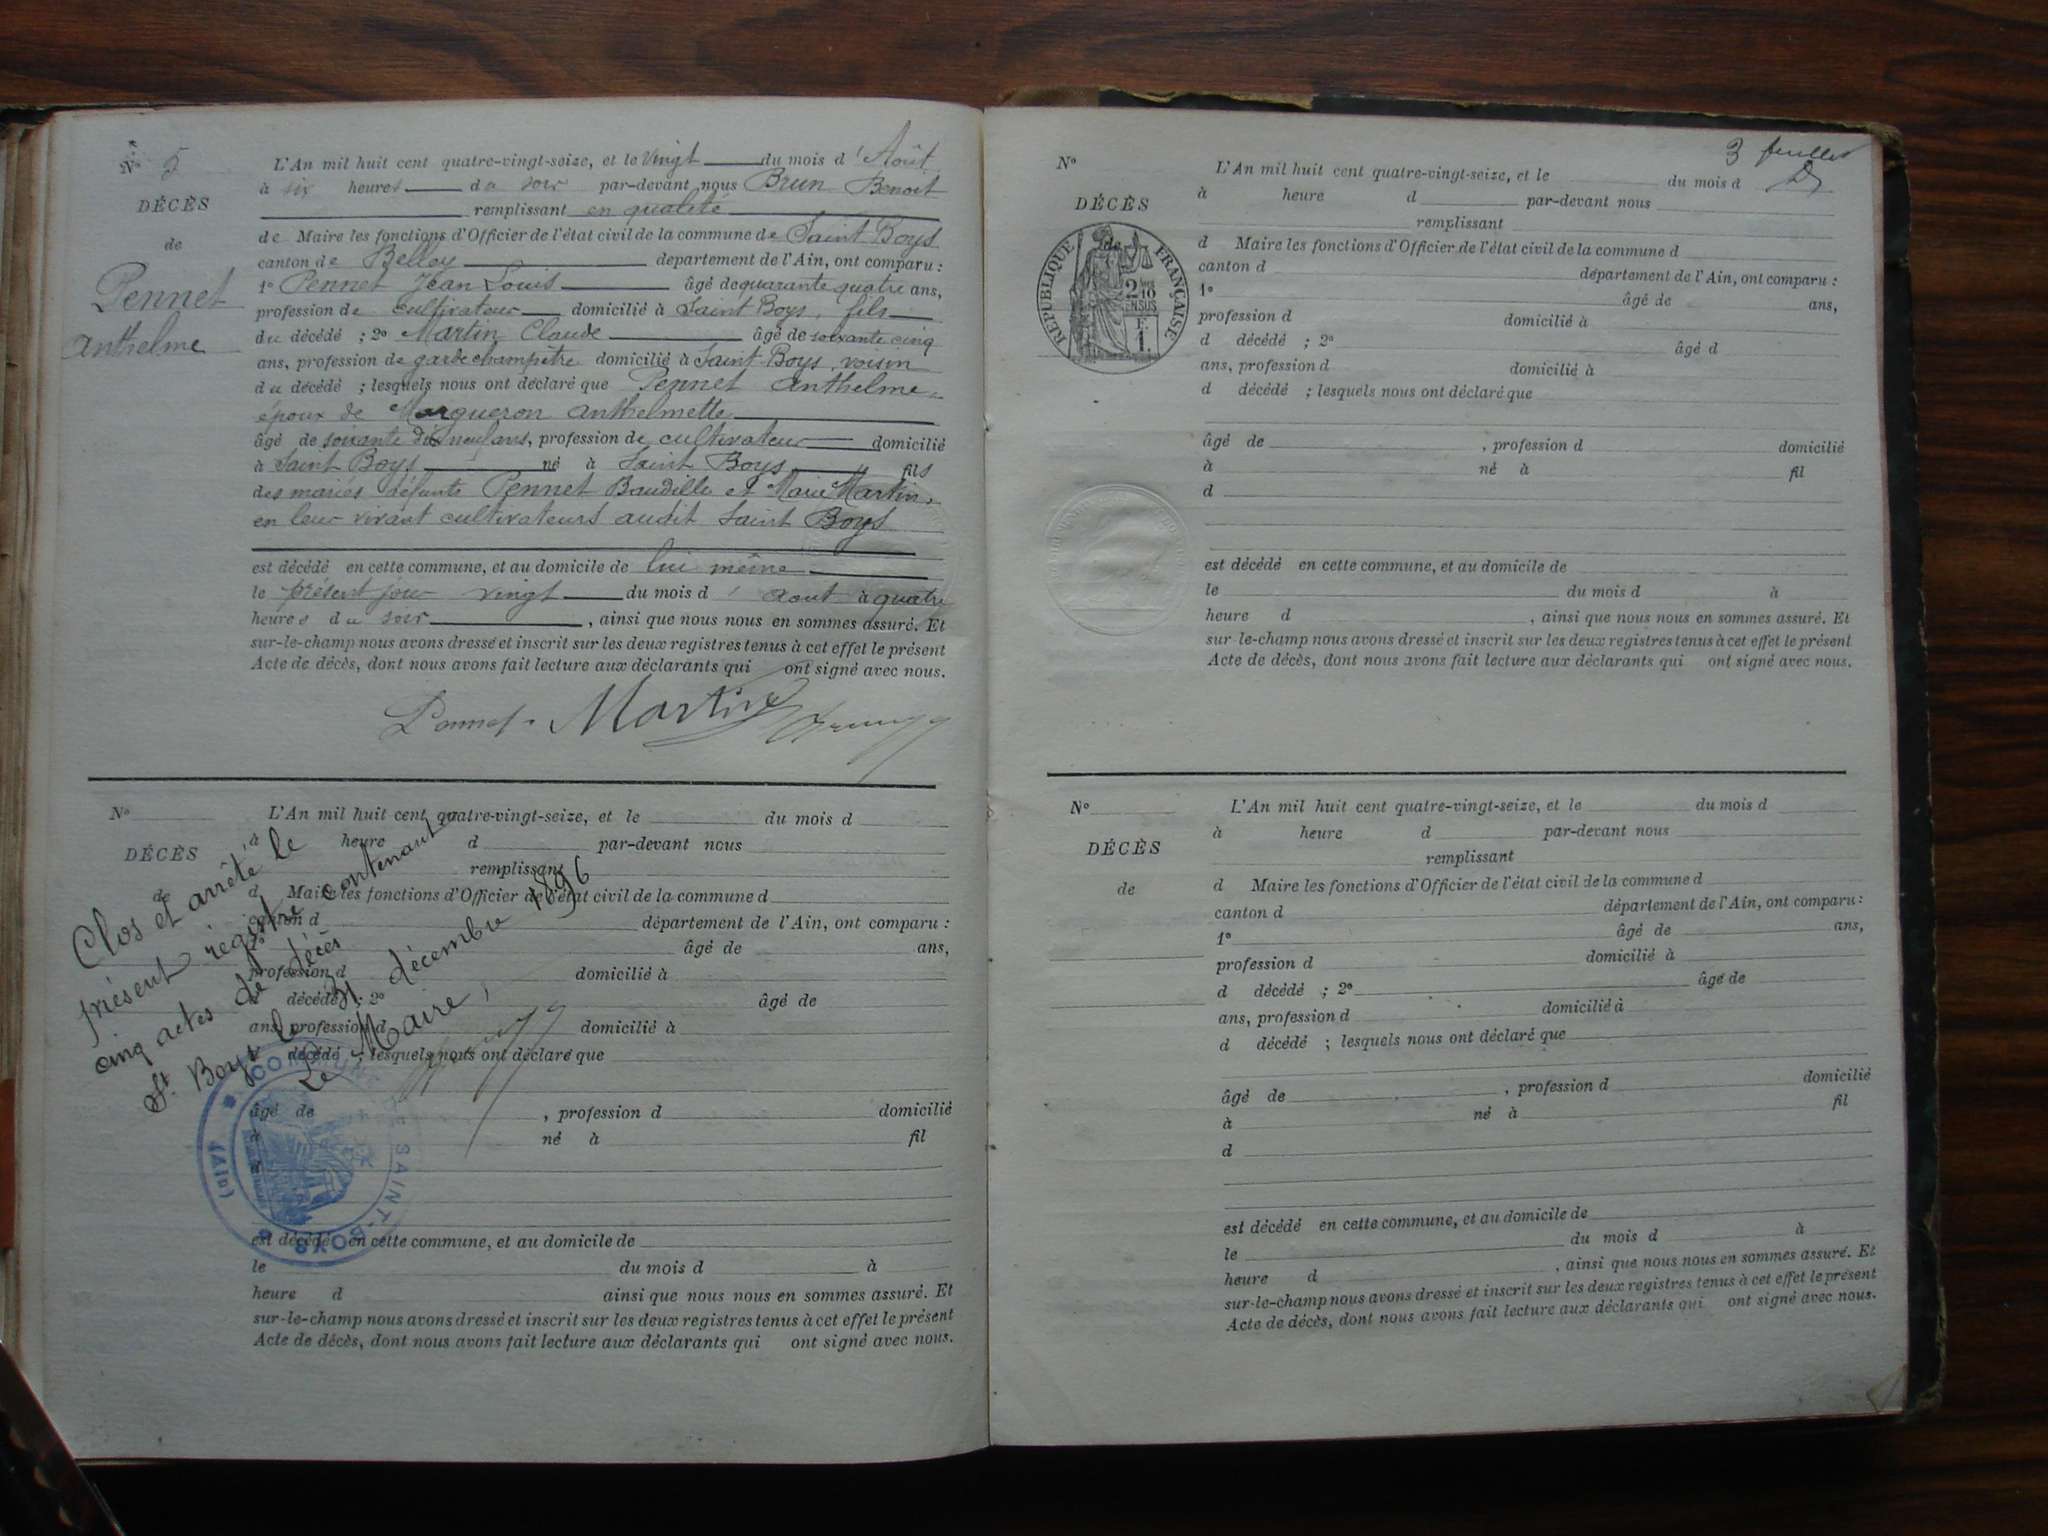 Nº 5
DÉCÈS
de
Pennet
Anthelme
L'An mil huit cent quatre-vingt-seize, et le Vingt du mois d'Août
à six heures du soir par-devant nous Brun Benoit
remplissant en qualité
de Maire les fonctions d'Officier de l'état civil de la commune de Saint Boys
canton de Belley département de l'Ain, ont comparu :
1º Pennet Jean Louis âgé de quarante quatre ans,
profession de cultivateur domicilié à Saint Boys, fils
du décédé ; 2º Martin Claude âgé de soixante cinq
ans, profession de garde champêtre domicilié à Saint Boys, voisin
du décédé ; lesquels nous ont déclaré que Pennet Anthelme
époux de Marqueron Anthelmette
âgé de soixante dix neuf ans, profession de cultivateur domicilié
à Saint Boys né à Saint Boys fils
des mariés défunts Pennet Baudille et Marie Martin,
en leur vivant cultivateurs audit Saint Boys
est décédé en cette commune, et au domicile de lui même
le présent jour vingt du mois d'Aout à quatre
heures du soir, ainsi que nous nous en sommes assuré. Et
sur-le-champ nous avons dressé et inscrit sur les deux registres tenus à cet effet le présent
Acte de décès, dont nous avons fait lecture aux déclarants qui ont signé avec nous.
Pennet Martin
Nº
DÉCÈS
de
L'An mil huit cent quatre-vingt-seize, et le du mois d
à heure d par-devant nous
remplissant
d Maire les fonctions d'Officier de l'état civil de la commune d
canton d département de l'Ain, ont comparu :
1º âgé de ans,
profession d domicilié à
d décédé ; 2º âgé de
ans, profession d domicilié à
d décédé ; lesquels nous ont déclaré que
âgé de , profession d domicilié
à né à fil
d
est décédé en cette commune, et au domicile de
le du mois d à
heure d ainsi que nous nous en sommes assuré. Et
sur-le-champ nous avons dressé et inscrit sur les deux registres tenus à cet effet le présent
Acte de décès, dont nous avons fait lecture aux déclarants qui ont signé avec nous.
Clos et arrêté le
présent registre contenant
cinq actes de décès
St. Boys le 31 décembre 1896
Le Maire,
COMMUNE DE SAINT-BOYS
(AIN)
3 feuillet
Nº
DÉCÈS
de
RÉPUBLIQUE FRANÇAISE
2/10 EN SUS
F. 1.
L'An mil huit cent quatre-vingt-seize, et le du mois d
à heure d par-devant nous
remplissant
d Maire les fonctions d'Officier de l'état civil de la commune d
canton d département de l'Ain, ont comparu :
1º âgé de ans,
profession d domicilié à
d décédé ; 2º âgé d
ans, profession d domicilié à
d décédé ; lesquels nous ont déclaré que
âgé de , profession d domicilié
à né à fil
d
est décédé en cette commune, et au domicile de
le du mois d à
heure d , ainsi que nous nous en sommes assuré. Et
sur-le-champ nous avons dressé et inscrit sur les deux registres tenus à cet effet le présent
Acte de décès, dont nous avons fait lecture aux déclarants qui ont signé avec nous.
Nº
DÉCÈS
de
L'An mil huit cent quatre-vingt-seize, et le du mois d
à heure d par-devant nous
remplissant
d Maire les fonctions d'Officier de l'état civil de la commune d
canton d département de l'Ain, ont comparu :
1º âgé de ans,
profession d domicilié à
d décédé ; 2º âgé de
ans, profession d domicilié à
d décédé ; lesquels nous ont déclaré que
âgé de , profession d domicilié
à né à fil
d
est décédé en cette commune, et au domicile de
le du mois d à
heure d , ainsi que nous nous en sommes assuré. Et
sur-le-champ nous avons dressé et inscrit sur les deux registres tenus à cet effet le présent
Acte de décès, dont nous avons fait lecture aux déclarants qui ont signé avec nous.